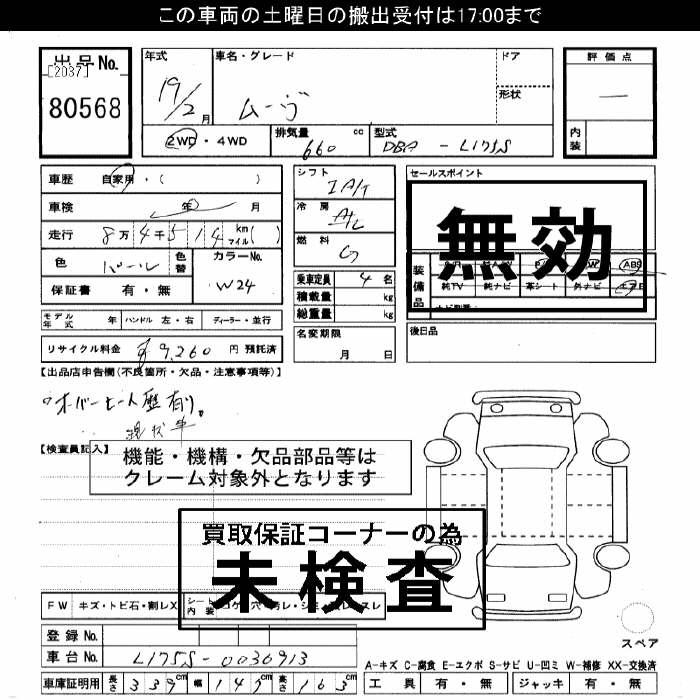 この車両の土曜日の搬出受付は17:00まで
出品No.
[2037]
80568
年式
19/2 月
車名・グレード
ムーヴ
ドア
形状
2WD・4WD
排気量 cc
660
型式
DBA - L175S
評価点
内装
車歴 自家用・( )
車検 年 月
走行 8万4千514 km マイル( )
色 パール 色替
カラーNo.
W24
保証書 有・無
モデル年式 年 ハンドル 左・右 ディーラー・並行
リサイクル料金 ¥9,260 円 預託済
シフト
IA/T
冷房
A/C
燃料
G
乗車定員 4 名
積載量 kg
総重量 kg
名変期限
月 日
セールスポイント
無効
装備品
ABS
純TV 純ナビ 革シート 外ナビ エアB
後日品
【出品店申告欄(不良箇所・欠品・注意事項等)】
オーバーヒート歴有り。
現状車
【検査員記入】
機能・機構・欠品部品等は
クレーム対象外となります
買取保証コーナーの為
未検査
FW キズ・トビ石・割レX
シート内装
登録No.
車台No. L175S-0036913
車庫証明用 長さ 339cm 幅 147cm 高さ 163cm
スペア
A-キズ C-腐食 E-エクボ S-サビ U-凹ミ W-補修 XX-交換済
工具 有・無 ジャッキ 有・無